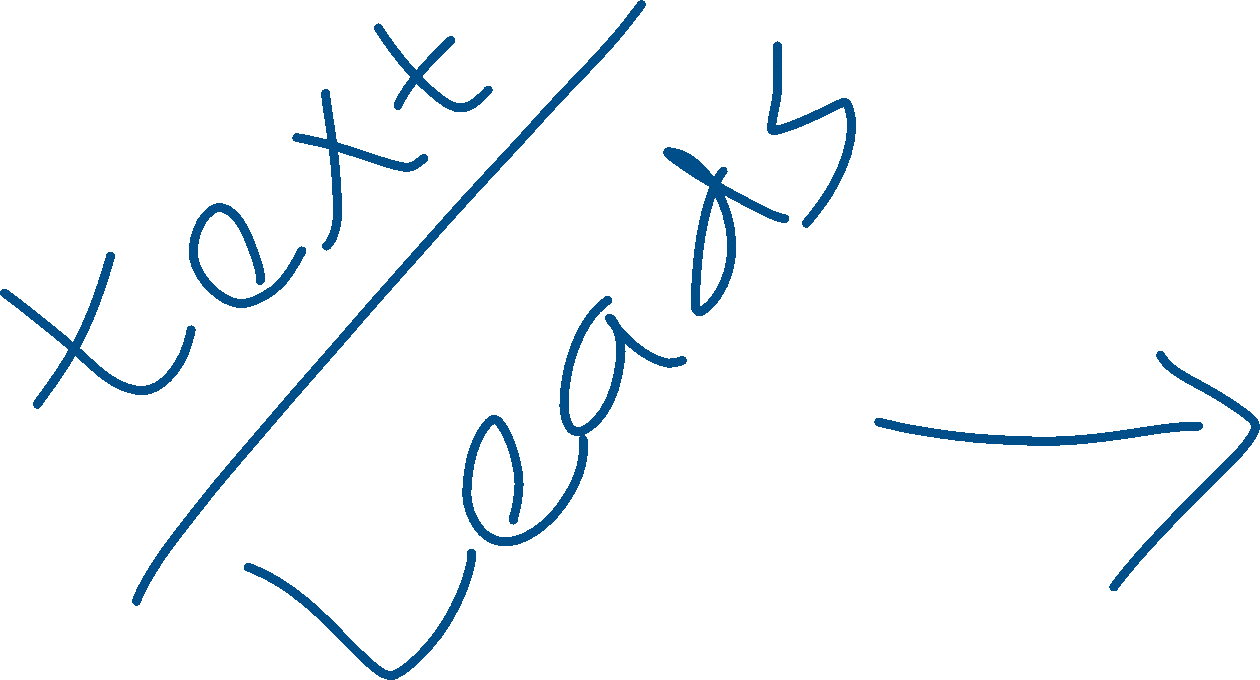 text
Leads